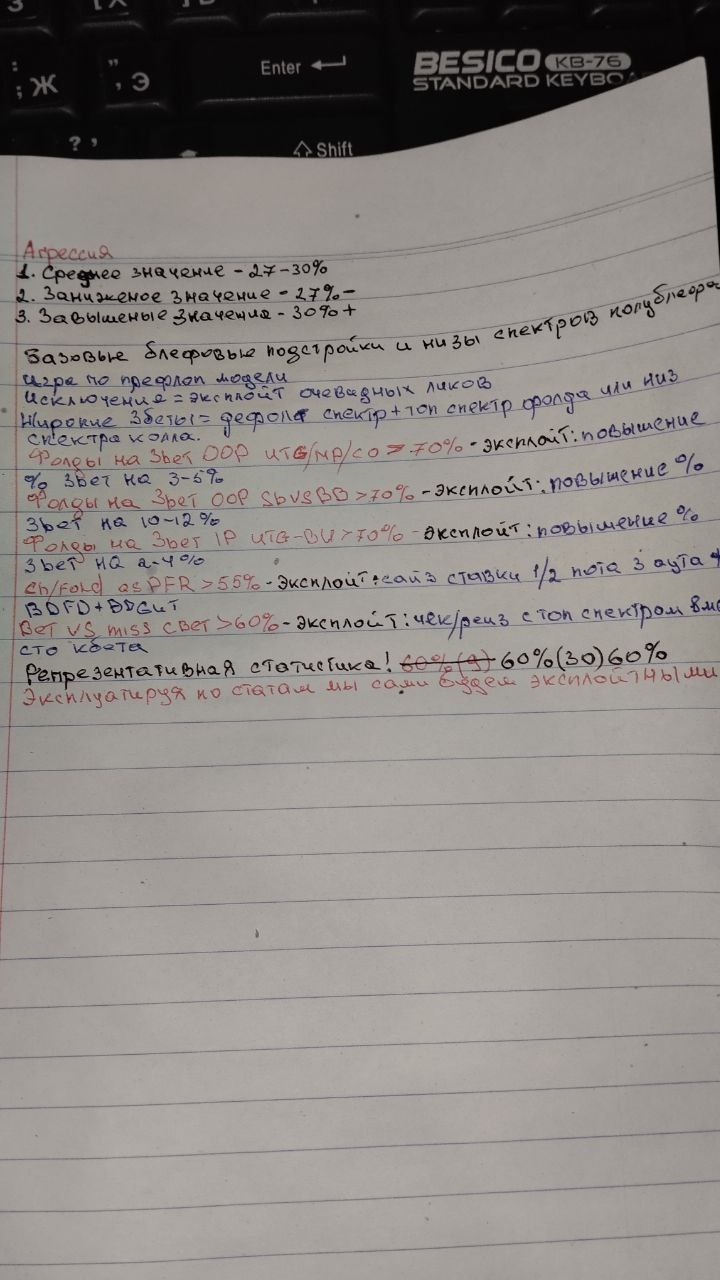 : ; Ж
" , Э
Enter
BESICO KB-76
STANDARD KEYBOA
? ,
Shift
Агрессия
1. Среднее значение - 27-30%
2. Заниженое значение - 27%-
3. Завышеные значения - 30%+
Базовые блефовые подстройки и низы спектров полублефа
Игра по префлоп модели
Исключение = эксплойт очевидных ликов
Широкие 3беты = дефолт спектр + топ спектр фолда или низ
спектра колла.
Фолды на 3bet OOP UTG/MP/CO > 70% - эксплойт: повышение
% 3bet на 3-5%
Фолды на 3bet OOP SbvsBB > 70% - эксплойт: повышение %
3bet на 10-12%
Фолды на 3bet IP UTG-BU > 70% - эксплойт: повышение %
3bet на 2-4%
Ch/Fold as PFR > 55% - эксплойт: сайз ставки 1/2 пота 3 аута +
BDFD + BDGut
Bet vs miss cbet > 60% - эксплойт: чек/рейз с топ спектром вме
сто кбета
Репрезентативная статистика! 60% (9) 60% (30) 60%
Эксплуатируя по статам мы сами будем эксплойтными